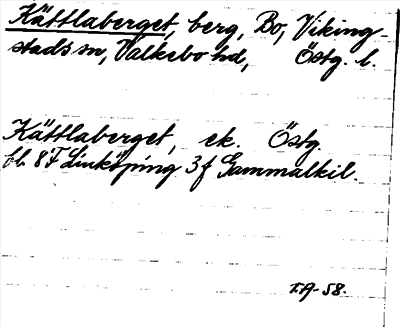 Kättlaberget, berg, Bo, Viking-
stads sn, Valkebo hd, Östg. l.
Kättlaberget, ek. Östg.
bl. 8F Linköping 3f Gammalkil.
T.A-58.